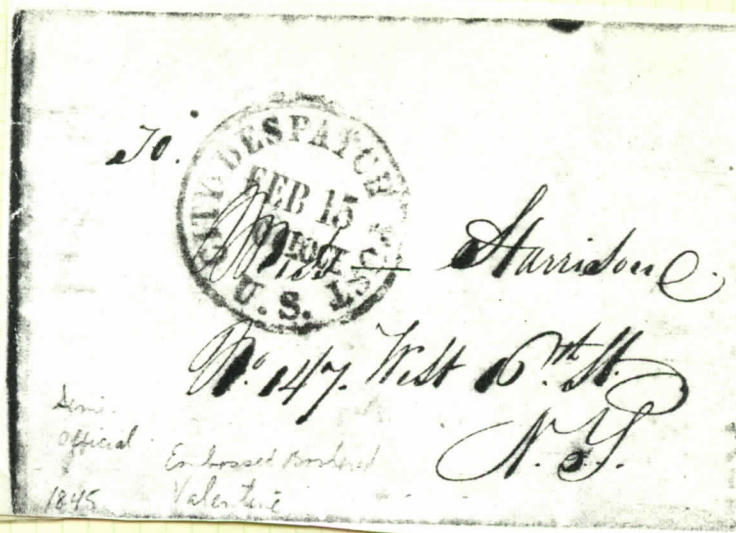 To.
CITY DESPATCH POST
FEB 15
O'CLOCK
U.S.
Miss — Harrison
No. 147. West 16th St.
N.Y.
Demi-
Official
1845
Embossed Bordered
Valentine